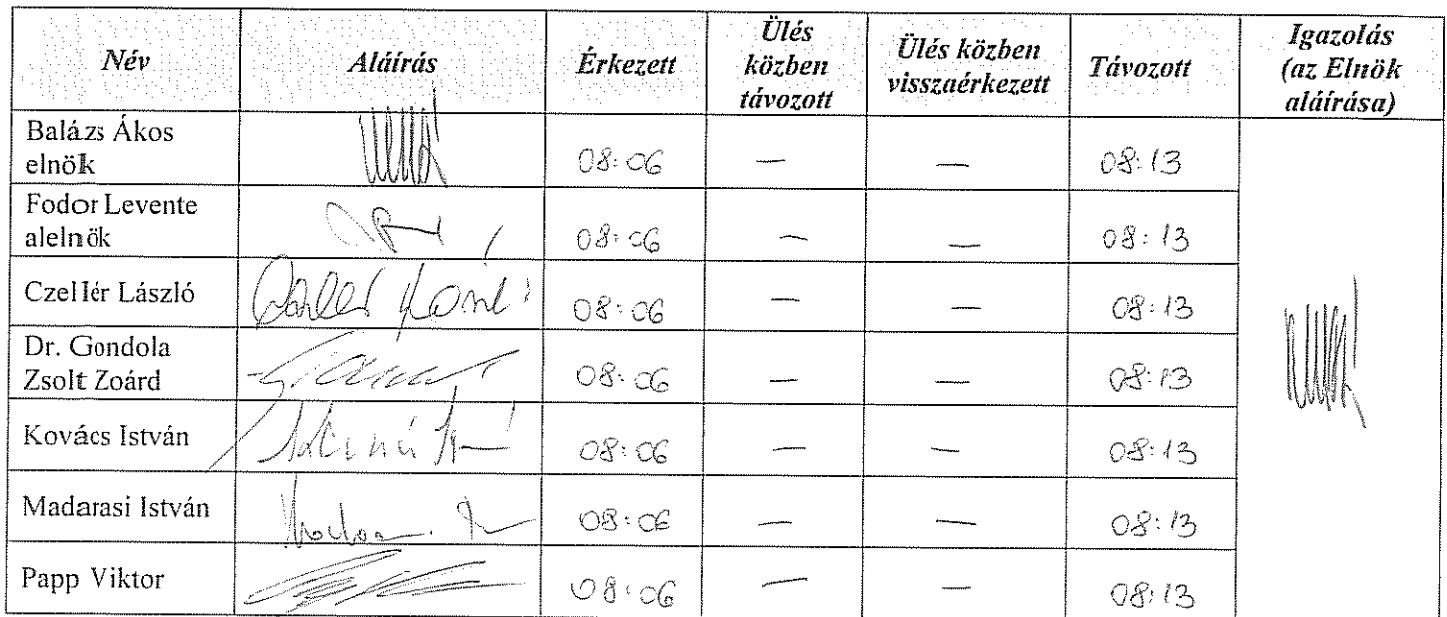 Név Aláírás Érkezett Ülés közben távozott Ülés közben visszaérkezett Távozott Igazolás (az Elnök aláírása)
Balázs Ákos
elnök 08:06 — — 08:13
Fodor Levente
alelnök 08:06 — — 08:13
Czellér László 08:06 — — 08:13
Dr. Gondola
Zsolt Zoárd 08:06 — — 08:13
Kovács István 08:06 — — 08:13
Madarasi István 08:06 — — 08:13
Papp Viktor 08:06 — — 08:13